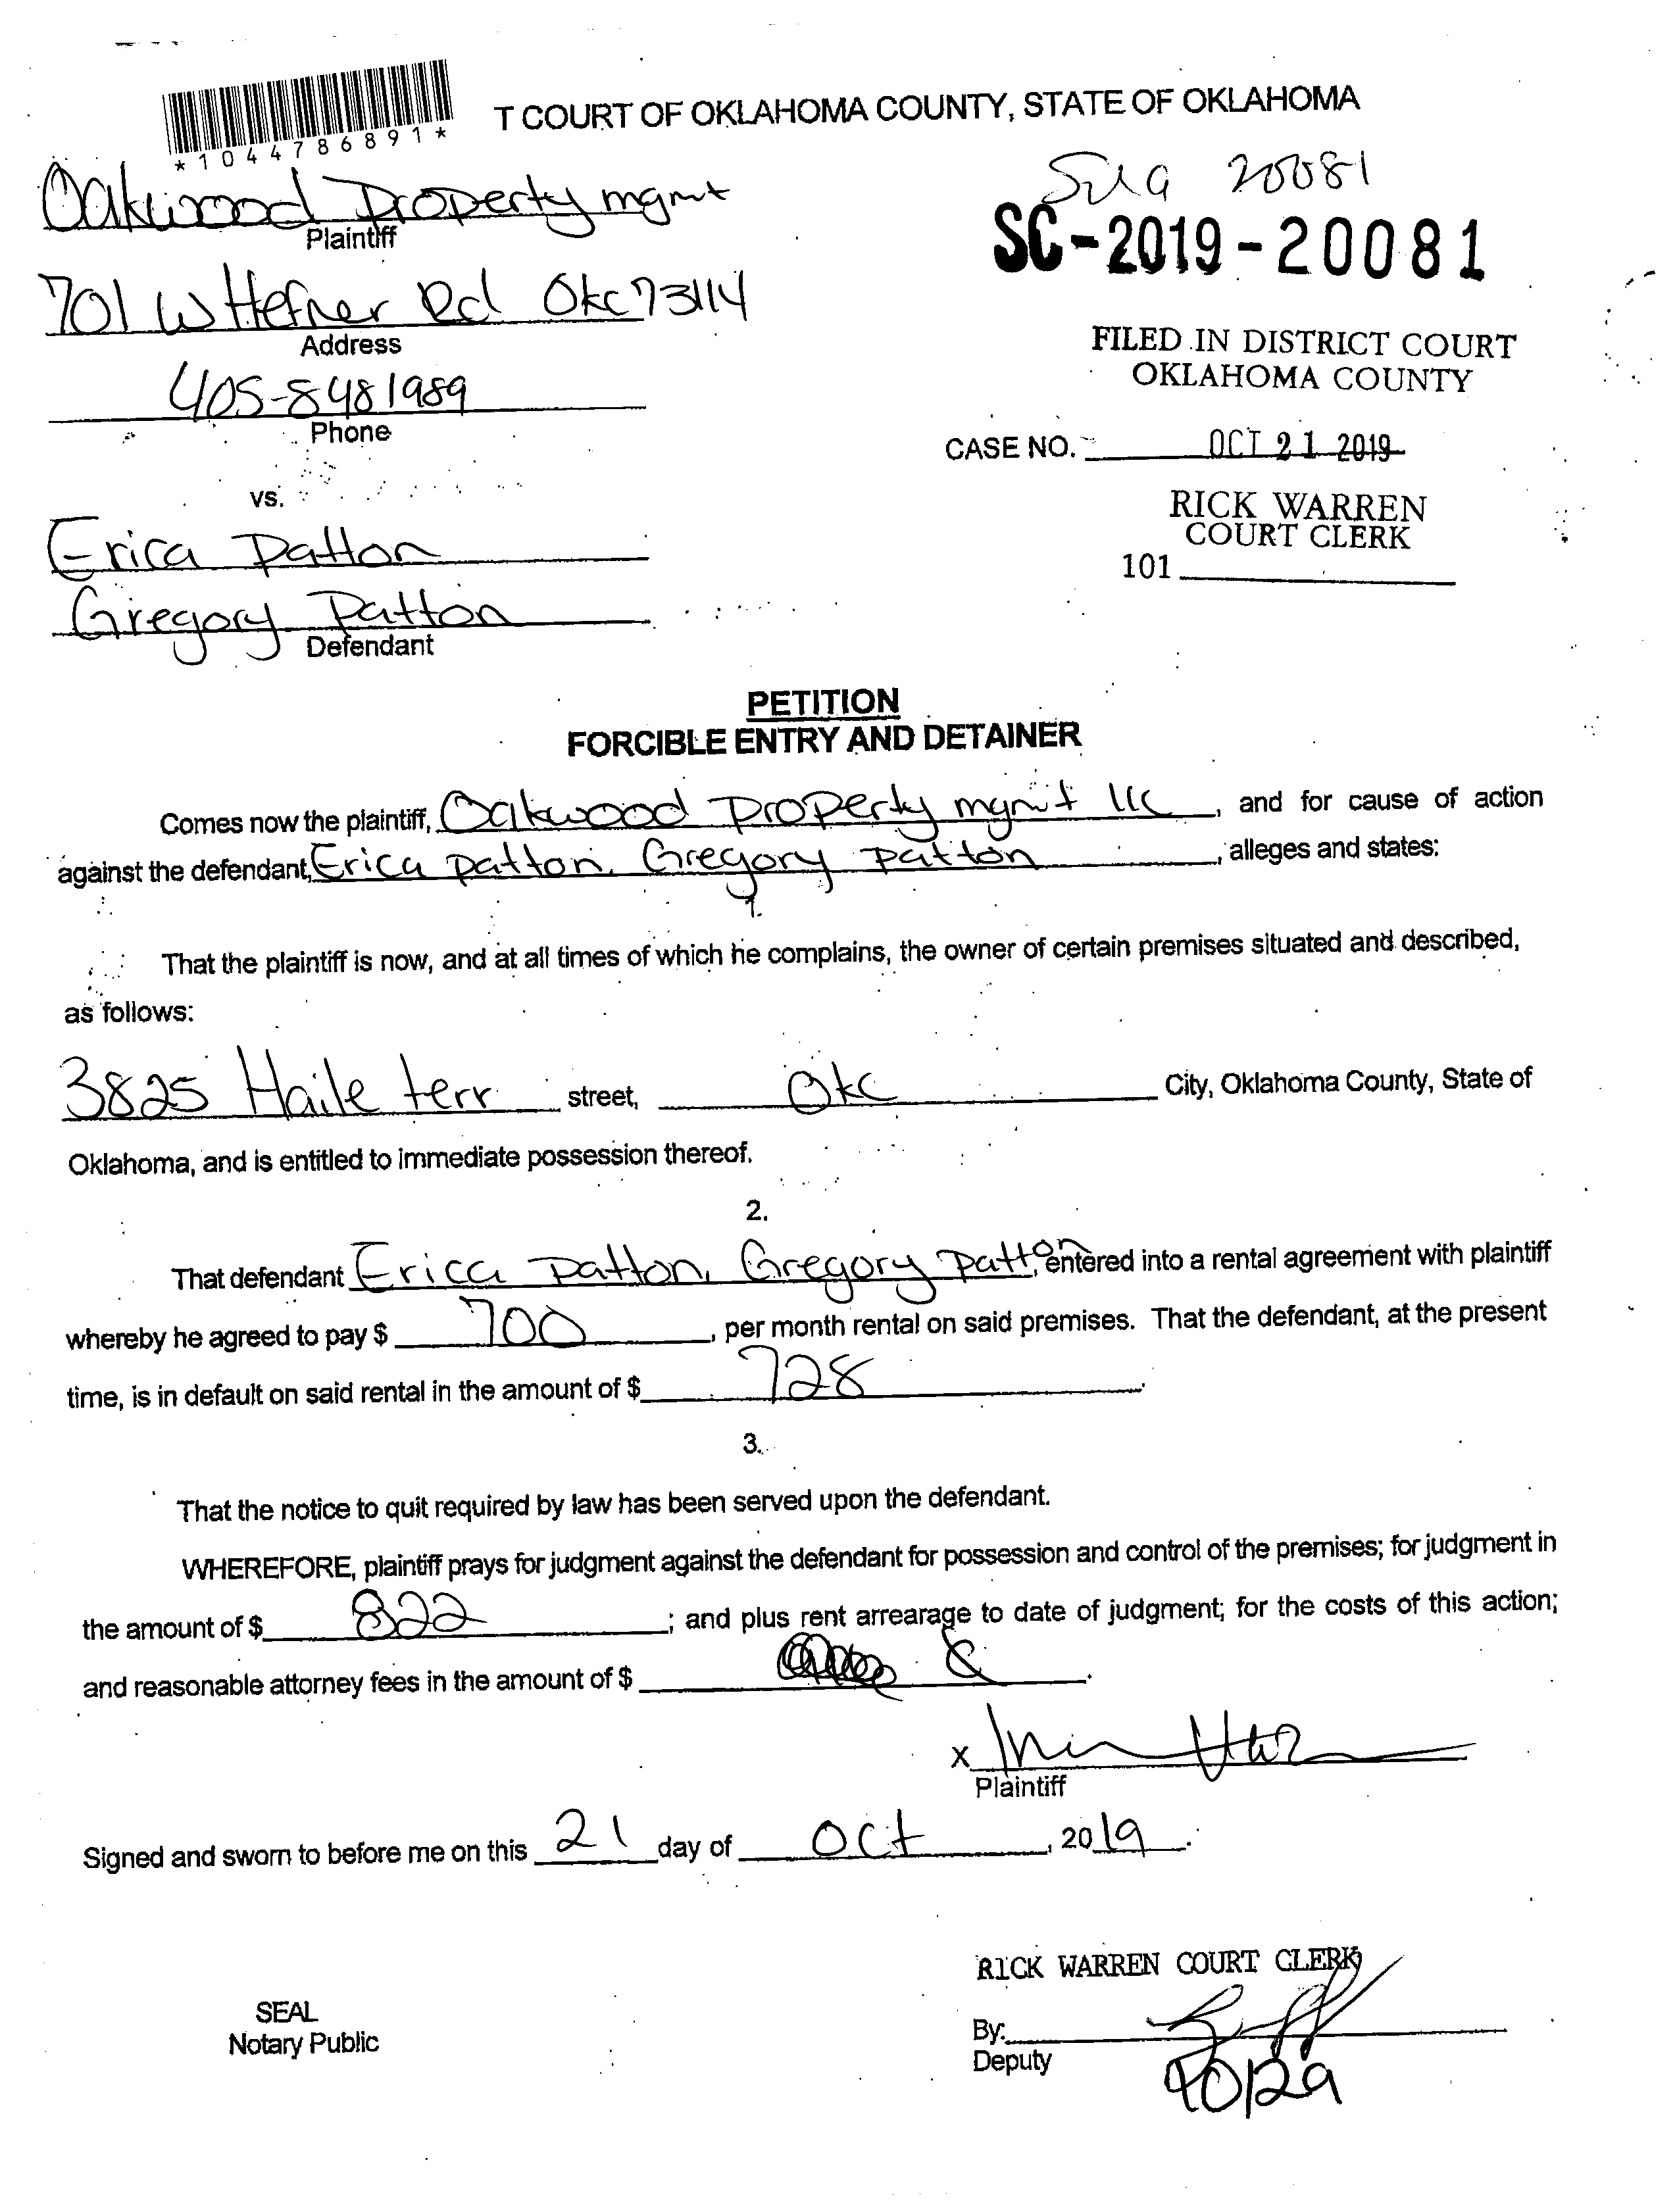 T COURT OF OKLAHOMA COUNTY, STATE OF OKLAHOMA
*1044786891*
20081
Oakwood Property mgmt
Plaintiff
SC-2019-20081
701 W Hefner Rd Okc 73114
Address
FILED IN DISTRICT COURT
OKLAHOMA COUNTY
405-848 1989
Phone
CASE NO. OCT 21 2019
vs.
RICK WARREN
COURT CLERK
101
Erica Patton
Gregory Patton
Defendant
PETITION
FORCIBLE ENTRY AND DETAINER
Comes now the plaintiff, Oakwood Property mgmt llc, and for cause of action
against the defendant, Erica Patton, Gregory Patton, alleges and states:
1.
That the plaintiff is now, and at all times of which he complains, the owner of certain premises situated and described,
as follows:
3825 Haile terr street, Okc City, Oklahoma County, State of
Oklahoma, and is entitled to immediate possession thereof.
2.
That defendant Erica Patton, Gregory Patton, entered into a rental agreement with plaintiff
whereby he agreed to pay $ 700, per month rental on said premises. That the defendant, at the present
time, is in default on said rental in the amount of $ 728.
3.
That the notice to quit required by law has been served upon the defendant.
WHEREFORE, plaintiff prays for judgment against the defendant for possession and control of the premises; for judgment in
the amount of $ 822; and plus rent arrearage to date of judgment; for the costs of this action;
and reasonable attorney fees in the amount of $
X
Plaintiff
Signed and sworn to before me on this 21 day of Oct, 2019.
RICK WARREN COURT CLERK
SEAL
Notary Public
By:
Deputy